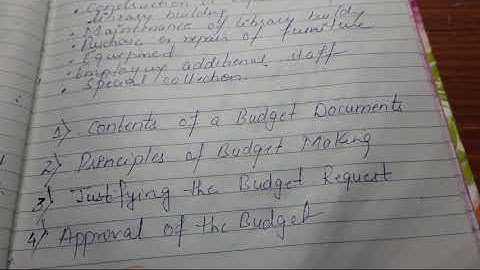 • Construction of
library building
• Maintenance of library build
• Puchase or repair of furniture
• Equipment
• Employing additional staff
• Special collection.
1) Contents of a Budget Documents
2) Principles of Budget Making
3) Justfying the Budget Request
4) Approval of the Budget